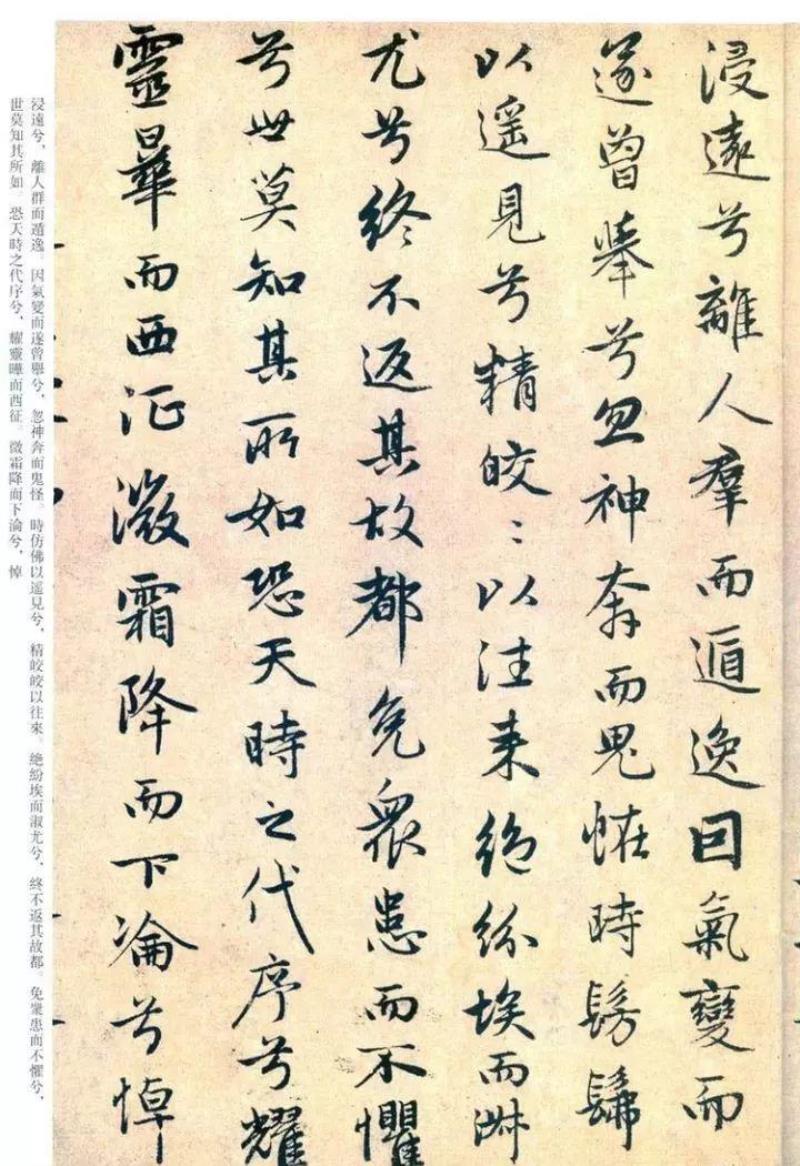 浸遠兮離人羣而遁逸因氣變而
遂曾舉兮忽神奔而鬼怪時髣髴
以遥見兮精皎〻以往来絶紛埃而淑
尤兮終不返其故都免衆患而不懼
兮世莫知其所如恐天時之代序兮耀
靈曄而西征微霜降而下淪兮悼
浸遠兮，離人群而遁逸。因氣變而遂曾舉兮，忽神奔而鬼怪。時仿佛以遥見兮，精皎皎以往來。絶紛埃而淑尤兮，終不返其故都。免衆患而不懼兮，
世莫知其所如。恐天時之代序兮，耀靈曄而西征。微霜降而下淪兮，悼